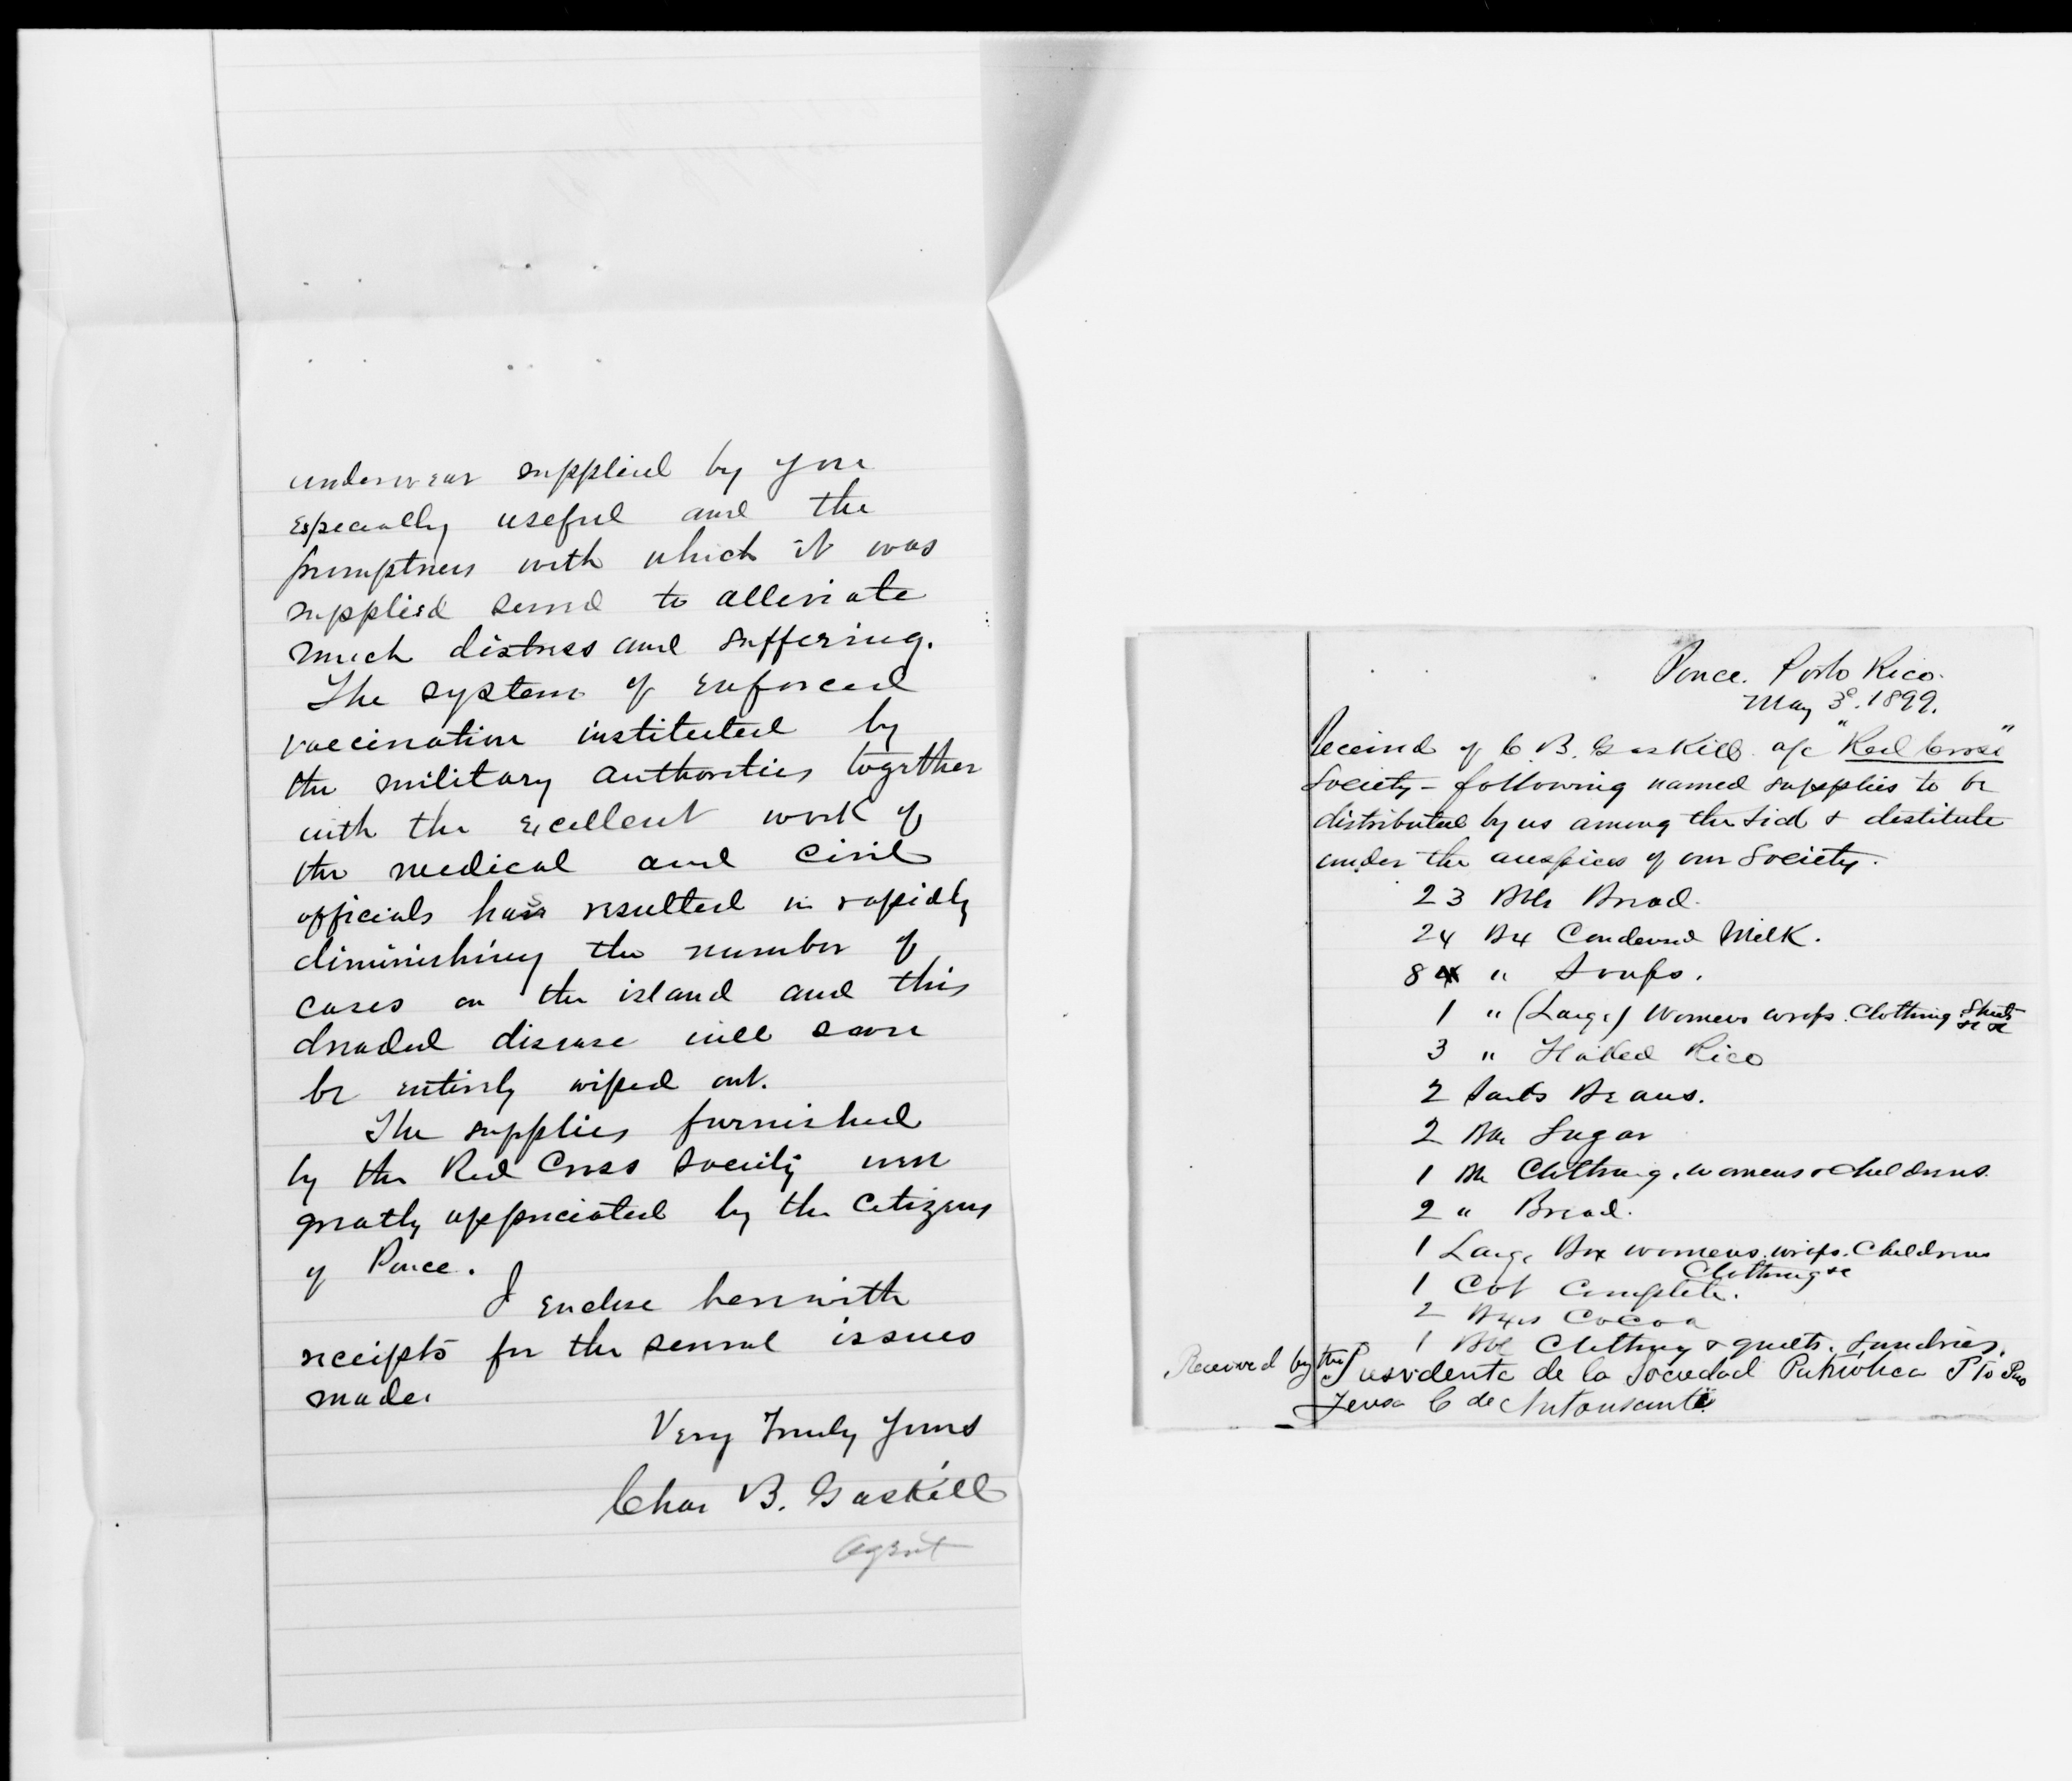 underwear supplied by you
especially useful and the
promptness with which it was
supplied served to alleviate
much distress and suffering.
The system of enforced
vaccination instituted by
the military authorities together
with the excellent work of
the medical and civil
officials has resulted in rapidly
diminishing the number of
cases on the island and this
dreaded disease will soon
be entirely wiped out.
The supplies furnished
by the Red Cross Society were
greatly appreciated by the citizens
of Ponce.
I enclose herewith
receipts for the several issues
made.
Very Truly Yours
Chas B. Gaskill
Agent
Ponce. Porto Rico.
May 3d. 1899.
Received of C. B. Gaskill a/c "Red Cross"
Society - following named supplies to be
distributed by us among the sick & destitute
under the auspices of our Society.
23 Bbls Bread.
24 Bx Condensed Milk.
8 " Soups.
1 " (Large) Womens wraps. Clothing. Sheets &c &c
3 " Flaked Rice
2 Sacks Beans.
2 Bbl Sugar
1 Bbl Clothing, womens & childrens.
2 " Bread.
1 Large Box womens wraps. Childrens
Clothing &c
1 Cot Complete.
2 Bxes Cocoa
1 Bbl Clothing & quilts. Sundries.
Received by the Presidenta de la Sociedad Patriotica Pto Rico
C de